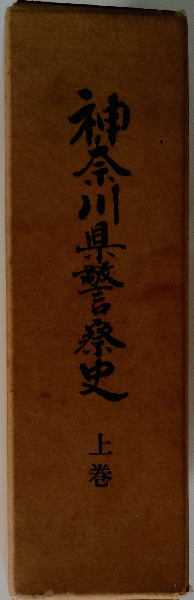 神奈川県警察史
上巻